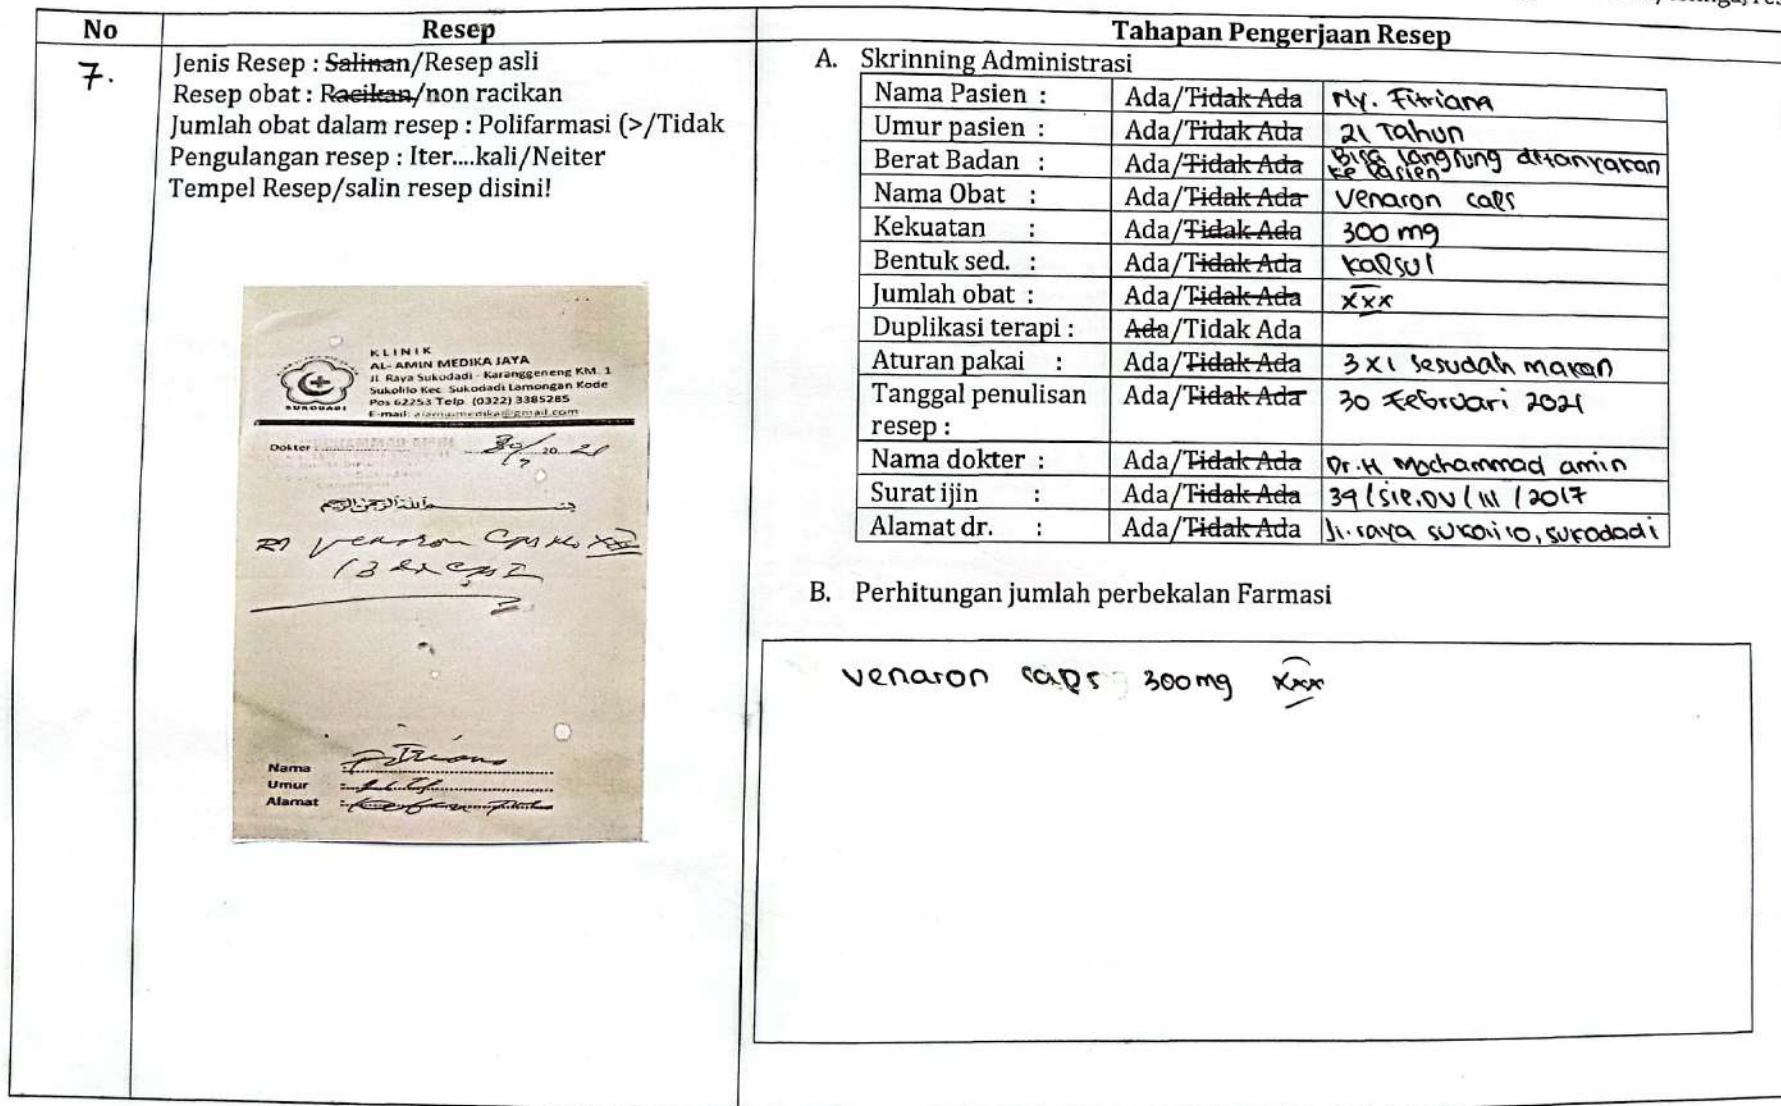 No
Resep
Tahapan Pengerjaan Resep
7.
Jenis Resep : Salinan/Resep asli
Resep obat : Racikan/non racikan
Jumlah obat dalam resep : Polifarmasi (>/Tidak
Pengulangan resep : Iter....kali/Neiter
Tempel Resep/salin resep disini!
KLINIK
AL- AMIN MEDIKA JAYA
Jl. Raya Sukodadi - Karanggeneng KM. 1
Sukolilo Kec. Sukodadi Lamongan Kode
Pos 62253 Telp. (0322) 3385285
E-mail:
SUKODADI
Dokter
20 21
Nama : Fitriana
Umur :
Alamat :
A. Skrinning Administrasi
Nama Pasien : Ada/Tidak Ada Ny. Fitriana
Umur pasien : Ada/Tidak Ada 21 Tahun
Berat Badan : Ada/Tidak Ada Bisa langsung ditanyakan
ke pasien
Nama Obat : Ada/Tidak Ada Venaron caps
Kekuatan : Ada/Tidak Ada 300 mg
Bentuk sed. : Ada/Tidak Ada kapsul
Jumlah obat : Ada/Tidak Ada xxx
Duplikasi terapi : Ada/Tidak Ada
Aturan pakai : Ada/Tidak Ada 3 x 1 sesudah makan
Tanggal penulisan Ada/Tidak Ada 30 Februari 2021
resep :
Nama dokter : Ada/Tidak Ada Dr. H Mochammad amin
Surat ijin : Ada/Tidak Ada 39/SIP.DU/III/2017
Alamat dr. : Ada/Tidak Ada Jl. raya sukolilo, sukodadi
B. Perhitungan jumlah perbekalan Farmasi
venaron caps 300mg xxx